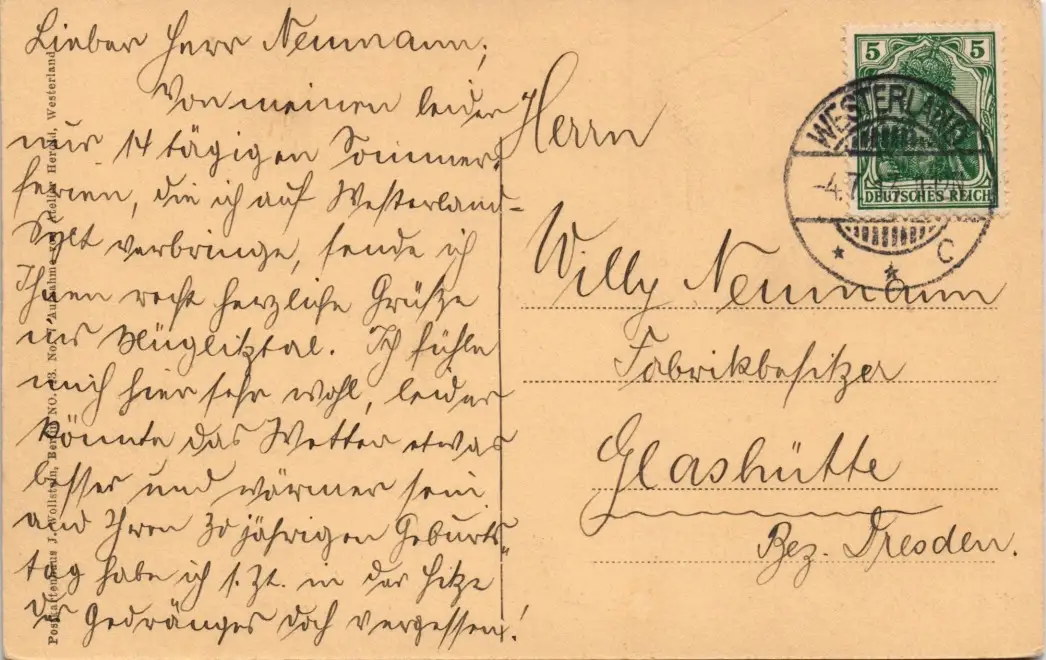 Lieber Herr Neumann,
Von meinen leider
nur 14 tägigen Sommer-
ferien, die ich auf Westerland-
Sylt verbringe, sende ich
Ihnen recht herzliche Grüße
ins Müglitztal. Ich fühle
mich hier sehr wohl, leider
könnte das Wetter etwas
besser und wärmer sein
und Ihren 30 jährigen Geburts-
tag habe ich s. Zt. in der Hitze
des Gedränges doch vergessen!
Postkartenhaus J. Wollstein, Berlin NO. Aufnahme von Atelier Herold, Westerland
5 5
DEUTSCHES REICH
WESTERLAND
-4.7.
* * C
Herrn
Willy Neumann
Fabrikbesitzer
Glashütte
Bez. Dresden.